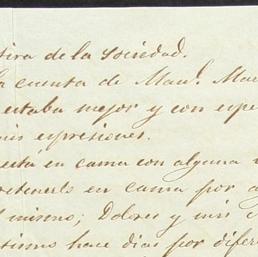 tira de la Sociedad.
la cuenta de Manl. Mar
estaba mejor y con espe
mis espresiones.
está en cama con alguna
retenerlo en cama por a
l mismo; Dolores y mis
tisimo hace dias por difer